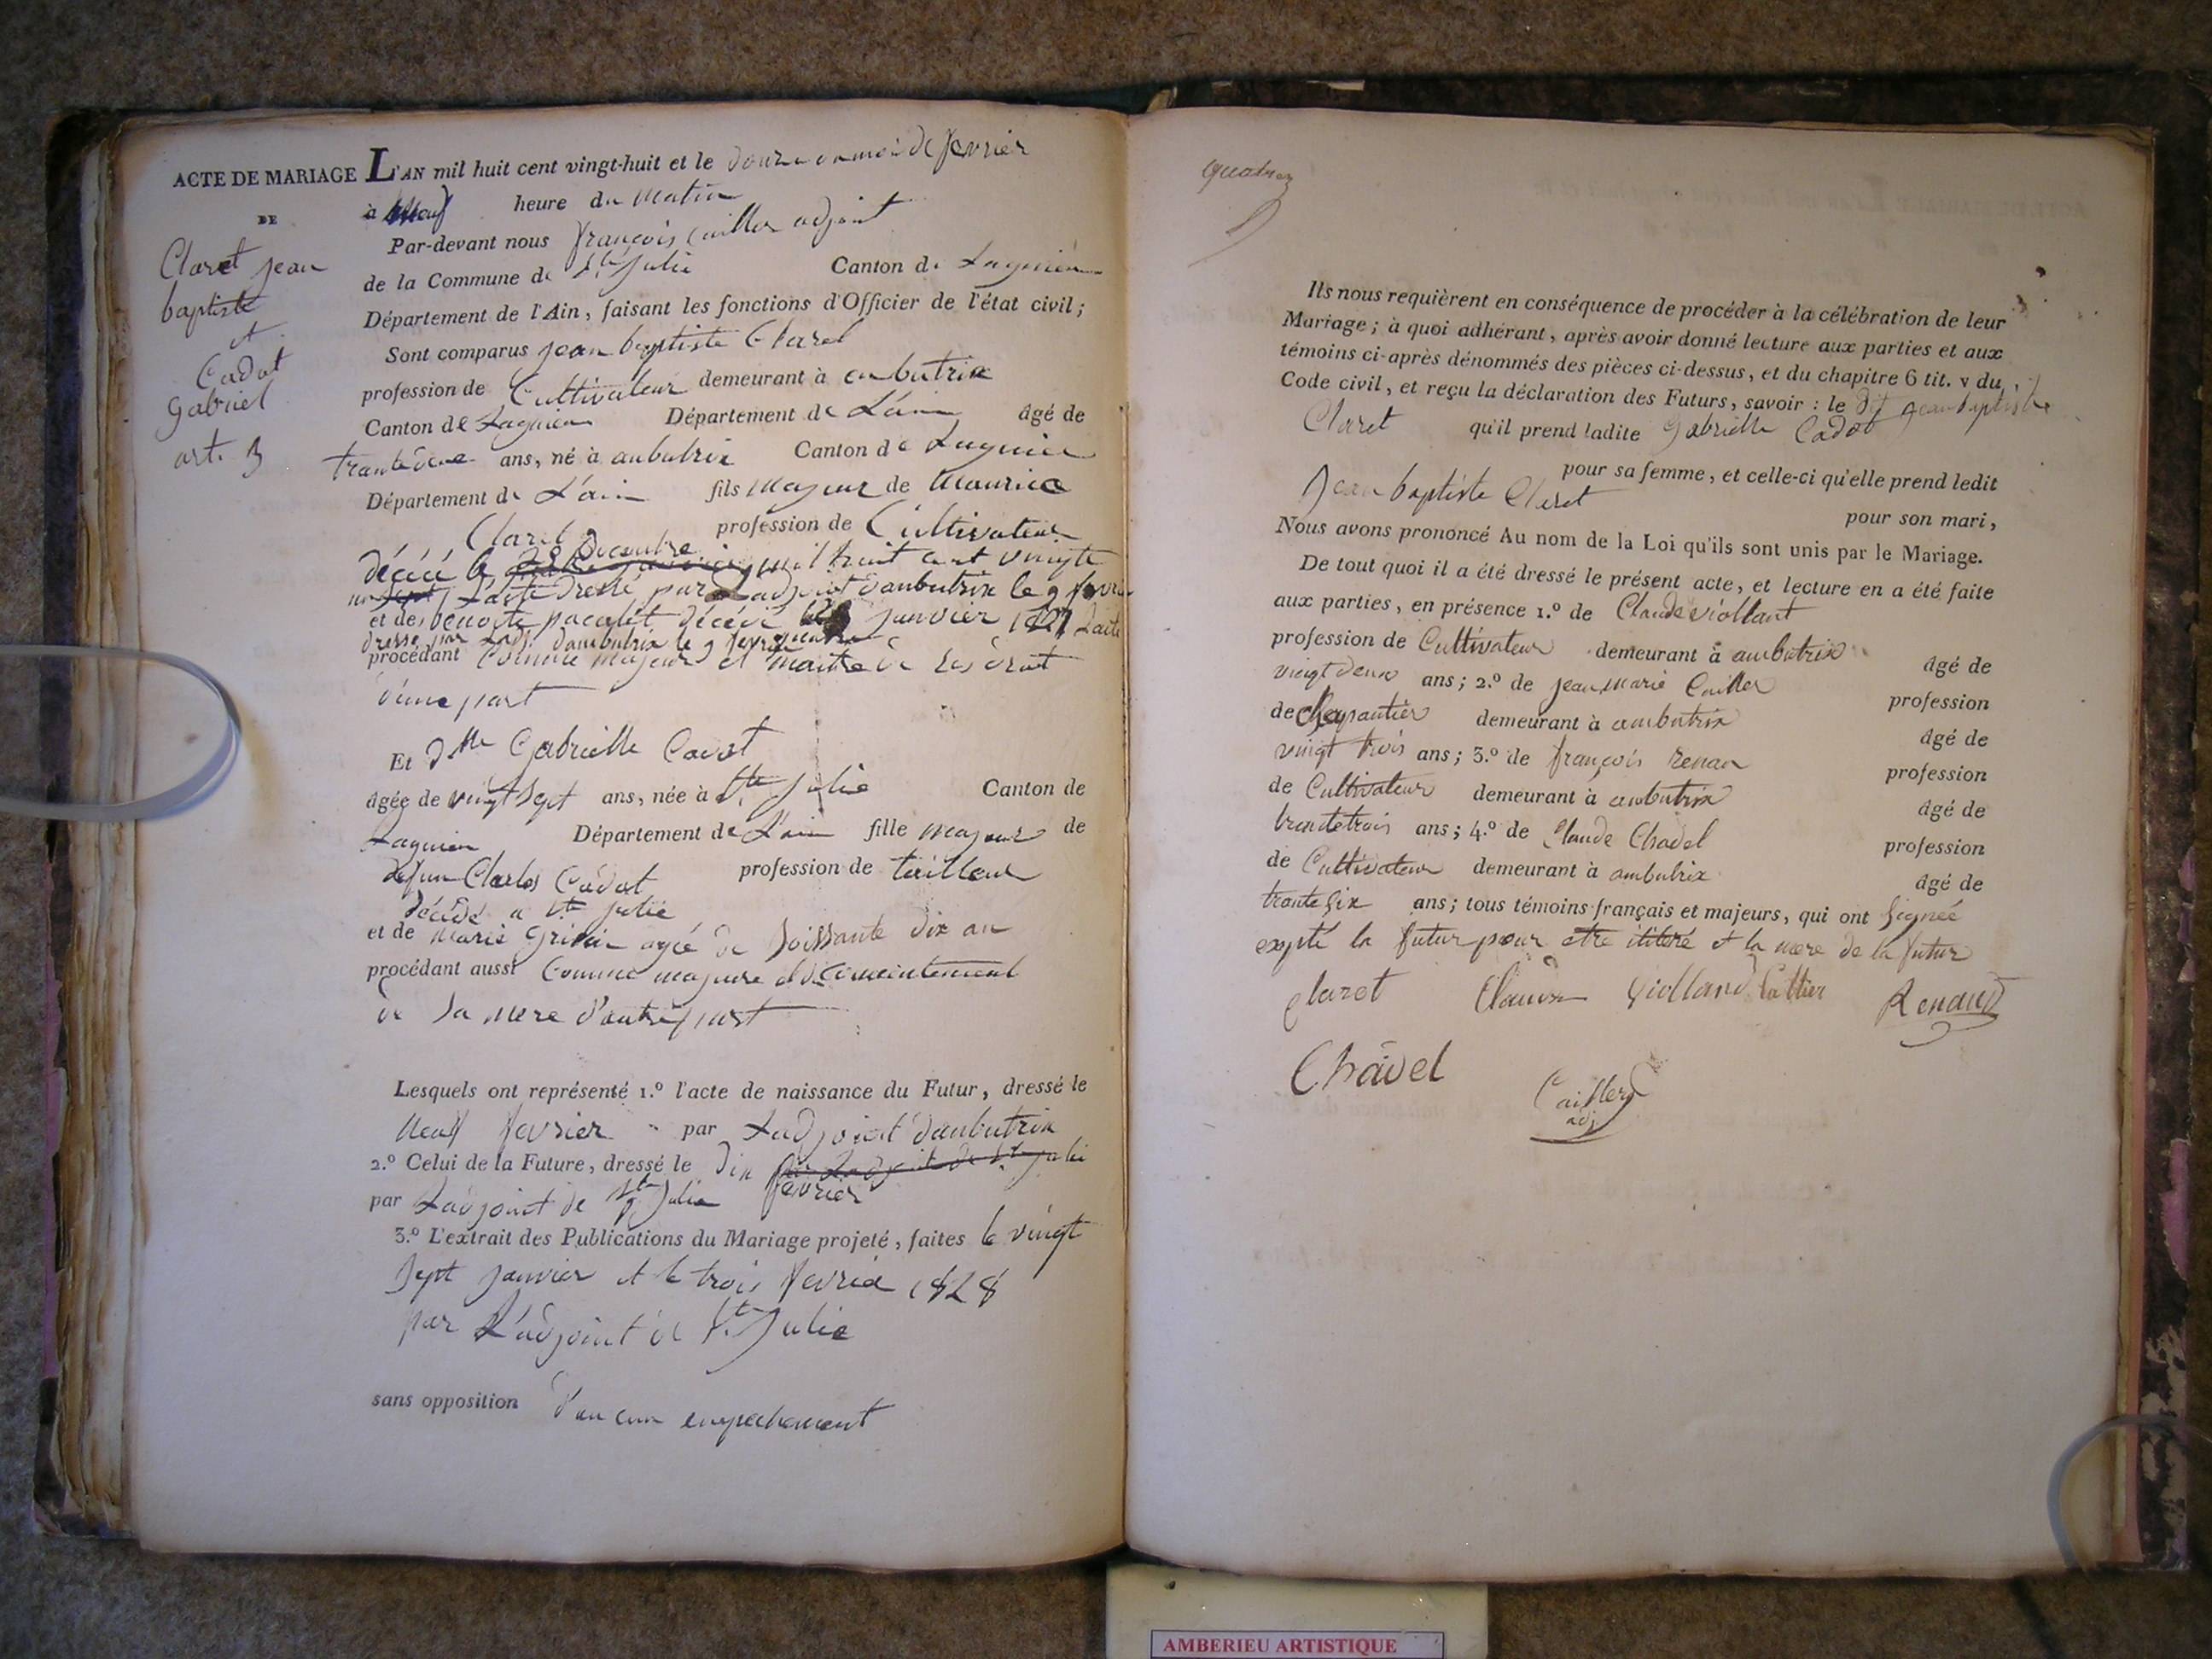 ACTE DE MARIAGE
DE
Claret jean
baptiste
et
Cadot
gabriel
art. 3
L'AN mil huit cent vingt-huit et le douze du mois de fevrier
à neuf heure du matin
Par-devant nous françois Cailler adjoint
de la Commune de Ste Julie Canton de Lagnieu
Département de l'Ain, faisant les fonctions d'Officier de l'état civil;
Sont comparus jean baptiste Claret
profession de Cultivateur demeurant à ambutrix
Canton de Lagnieu Département de L'ain âgé de
trante deux ans, né à ambutrix Canton de Lagnieu
Département de L'ain fils majeur de Maurice
Claret profession de Cultivateur
décédé le decembre mil huit cent vingte
L'acte dressé par Ladjoint dambutrix le 9 fevrier
et de benoite pacalet décédé janvier Lacte
dressé par Ladj. dambutrix le 9 fevrier
procédant Comme majeur et maitre de ses droit
d'une part
Et Dlle Gabrielle Cadot
âgée de vingt sept ans, née à Ste Julie Canton de
Lagnieu Département de L'ain fille majeur de
defun Charles Cadot profession de tailleur
décédé a Ste Julie
et de marie agée de soissante dix an
procédant aussi Comme majeure et du
de sa mere d'autre part
Lesquels ont représenté 1.º l'acte de naissance du Futur, dressé le
Neuf fevrier par Ladjoint dambutrix
2.º Celui de la Future, dressé le dix par Ladjoint de Ste julie
fevrier
par Ladjoint de Ste Julie
3.º L'extrait des Publications du Mariage projeté, faites le vingt
Sept janvier et le trois fevrier 1828
par L'adjoint de Ste Julie
sans opposition d'aucun empechement
quatre
Ils nous requièrent en conséquence de procéder à la célébration de leur
Mariage; à quoi adhérant, après avoir donné lecture aux parties et aux
témoins ci-après dénommés des pièces ci-dessus, et du chapitre 6 tit. v du
Code civil, et reçu la déclaration des Futurs, savoir: le dit jean baptiste
Claret qu'il prend ladite Gabrielle Cadot
pour sa femme, et celle-ci qu'elle prend ledit
Jean baptiste Claret pour son mari,
Nous avons prononcé Au nom de la Loi qu'ils sont unis par le Mariage.
De tout quoi il a été dressé le présent acte, et lecture en a été faite
aux parties, en présence 1.º de Claude viollant
profession de Cultivateur demeurant à ambutrix âgé de
vingt deux ans; 2.º de jean marie Cailler profession
de Chapantier demeurant à ambutrix âgé de
vingt trois ans; 3.º de françois Renau profession
de Cultivateur demeurant à ambutrix âgé de
trentetrois ans; 4.º de Claude Chavel profession
de Cultivateur demeurant à ambutrix âgé de
trante six ans; tous témoins français et majeurs, qui ont signée
expté la futur pour etre iliteré et la mere de la futur
Claret Claude Violland Renaud
Chavel
Cailler
adj
AMBERIEU ARTISTIQUE